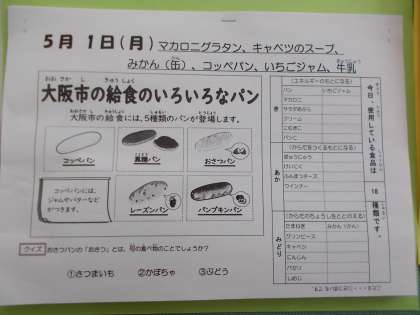 ５月１日(月) マカロニグラタン、キャベツのスープ、
みかん(缶)、コッペパン、いちごジャム、牛乳
おおさかし きゅうしょく
大阪市の給食のいろいろなパン
大阪市の給食には、5種類のパンが登場します。
コッペパン
黒糖パン
おさつパン
コッペパンには、
ジャムやバターなど
がつきます。
レーズンパン
パンプキンパン
クイズ おさつパンの「おさつ」とは、何の食べ物のことでしょうか？
①さつまいも ②かぼちゃ ③ぶどう
今日、使用している食品は
18
種類です。
き
(エネルギーのもとになる)
パン いちごジャム
マカロニ
サラダあぶら
クリーム
こむぎこ
パンこ
あか
(からだをつくるもとになる)
ぎゅうにゅう
けいにく
ふんまつチーズ
ウインナー
みどり
(からだのちょうしをととのえる)
たまねぎ みかん(かん)
グリンピース
キャベツ
にんじん
パセリ
しめじ